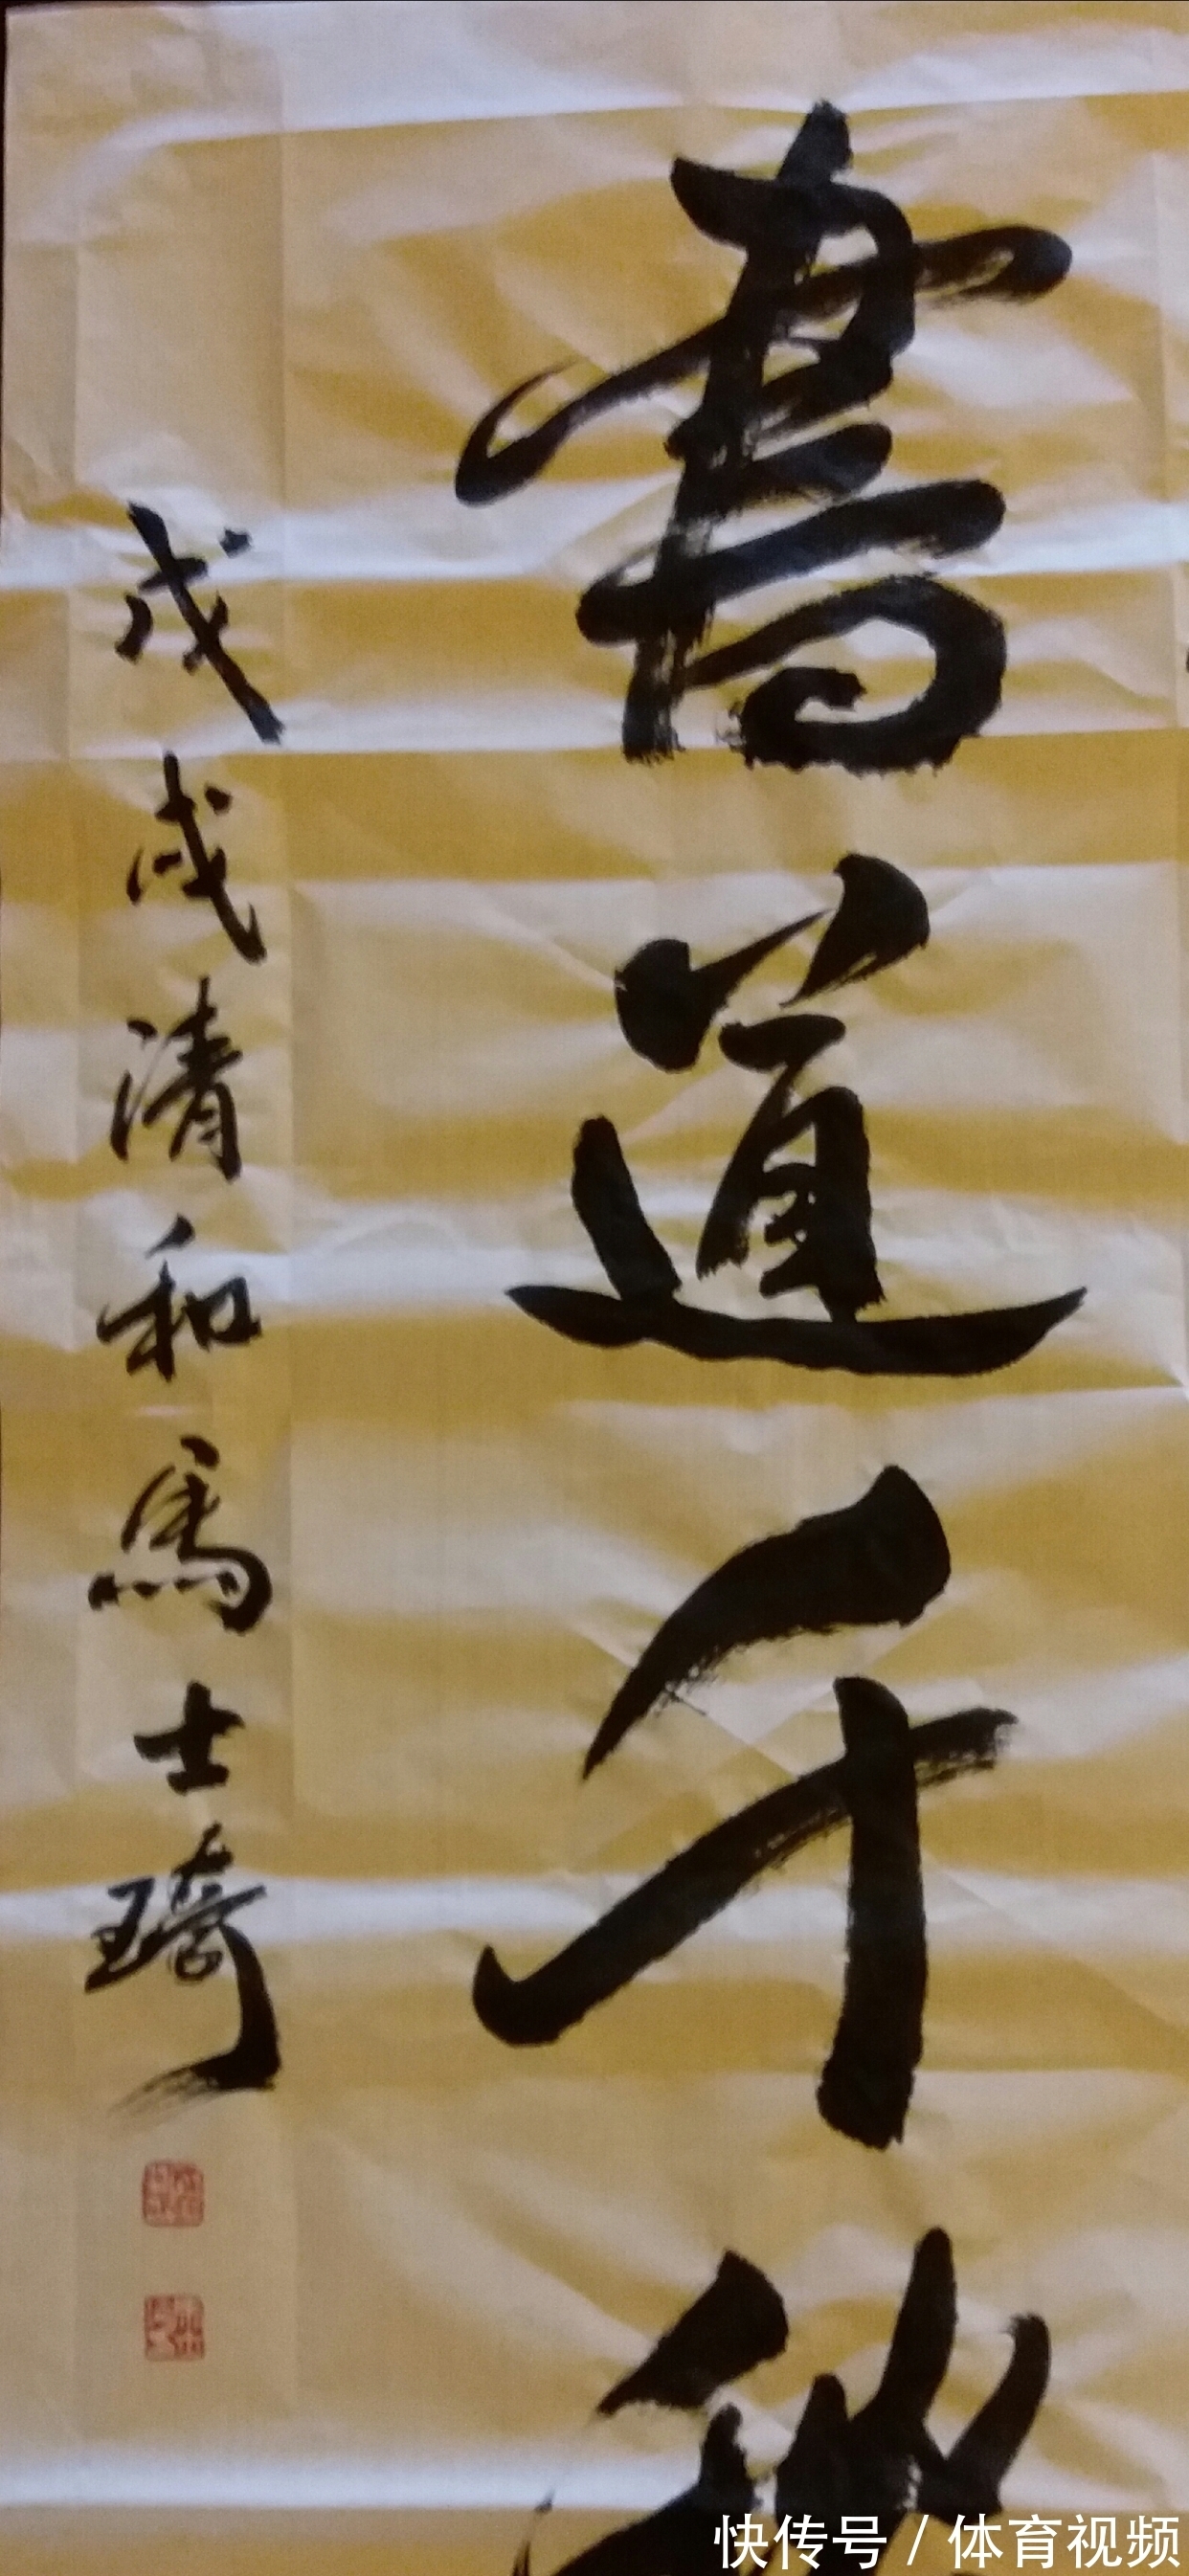 書道千秋
戊戌清和馬士琦
快传号/体育视频